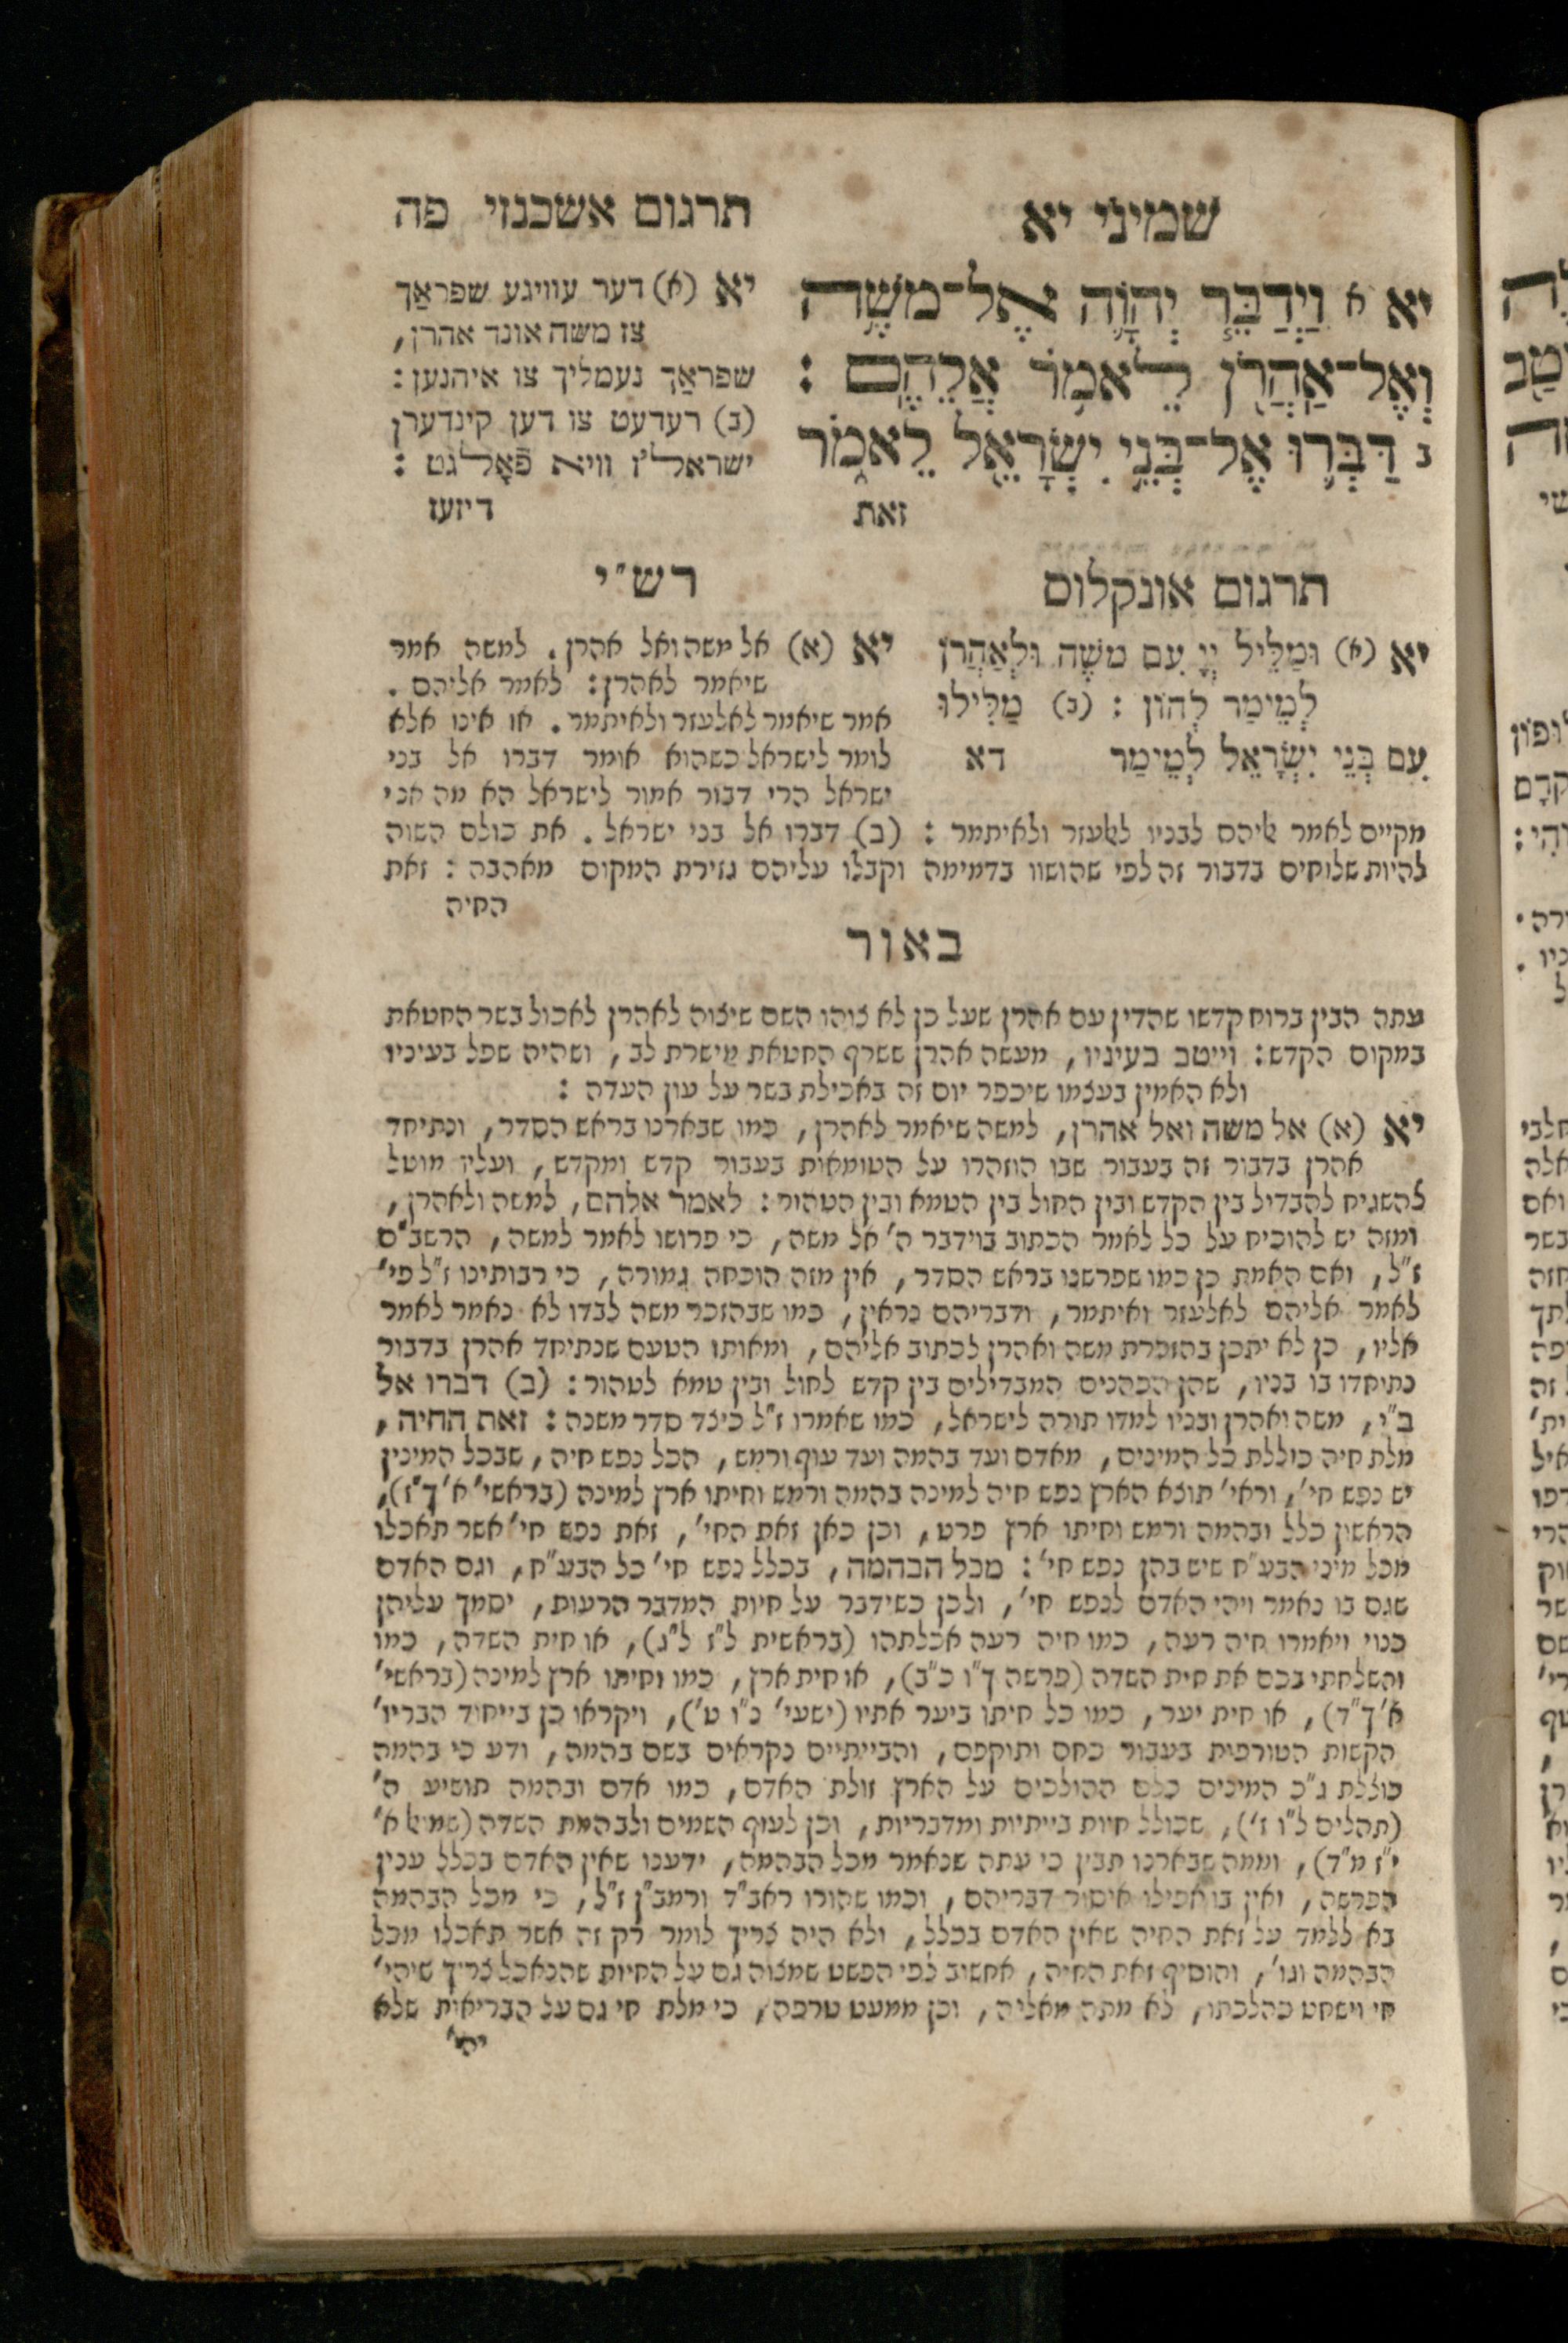 שמיני יא
תרגום אשכנזי פה
יא א וַיְדַבֵּר יְהוָֹה אֶל־משֶׁה
וְאֶל־אַהֲרֹן לֵאמֹר אֲלֵהֶם :
ב דַּבְּרוּ אֶל־בְּנֵי יִשְׂרָאֵל לֵאמֹר
זאת
יא (א) דער עוויגע שפראַך
צו משה אונד אהרן,
שפראַך נעמליך צו איהנען :
(ב) רעדעט צו דען קינדערן
ישראל'ז וויא פֿאָלגט :
דיזעז
תרגום אונקלוס
יא (א) וּמַלֵּיל יְיָ עִם משֶׁה וּלְאַהֲרֹן
לְמֵימַר לְהוֹן : (ב) מַלִּילוּ
עִם בְּנֵי יִשְׂרָאֵל לְמֵימַר דא
רש"י
יא (א) אל משה ואל אהרן. למשה אמר
שיאמר לאהרן: לאמר אליהם.
אמר שיאמר לאלעזר ולאיתמר. או אינו אלא
לומר לישראל כשהוא אומר דברו אל בני
ישראל הרי דבור אמור לישראל הא מה אני
מקיים לאמר אליהם לבניו לאלעזר ולאיתמר : (ב) דברו אל בני ישראל. את כולם השוה
להיות שלוחים בדבור זה לפי שהושוו בדמימה וקבלו עליהם גזירת המקום מאהבה : זאת
החיה
באור
עתה הבין ברוח קדשו שהדין עם אהרן שעל כן לא צוהו השם שיצוה לאהרן לאכול בשר החטאת
במקום הקדש: וייטב בעיניו, מעשה אהרן ששרף החטאת מישרת לב, ושהיה שפל בעיניו
ולא האמין בעצמו שיכפר יום זה באכילת בשר על עון העדה :
יא (א) אל משה ואל אהרן, למשה שיאמר לאהרן, כמו שבארנו בראש הסדר, ונתיחד
אהרן בדבור זה בעבור שבו הוזהרו על הטומאות בעבור קדש ומקדש, ועליו מוטל
להשגיח להבדיל בין הקדש ובין החול בין הטמא ובין הטהור: לאמר אלהם, למשה ולאהרן,
ומזה יש להוכיח על כל לאמר הכתוב בוידבר ה' אל משה, כי פרושו לאמר למשה, הרשב"ם
ז"ל, ואם האמת כן כמו שפרשנו בראש הסדר, אין מזה הוכחה גמורה, כי רבותינו ז"ל פי'
לאמר אליהם לאלעזר ואיתמר, ודבריהם נראין, כמו שבהזכר משה לבדו לא נאמר לאמר
אליו, כן לא יתכן בהזכרת משה ואהרן לכתוב אליהם, ומאותו הטעם שנתיחד אהרן בדבור
נתיחדו בו בניו, שהן הכהנים המבדילים בין קדש לחול ובין טמא לטהור: (ב) דברו אל
ב"י, משה ואהרן ובניו למדו תורה לישראל, כמו שאמרו ז"ל כיצד סדר משנה: זאת החיה,
מלת חיה כוללת כל המינים, מאדם ועד בהמה ועד עוף ורמש, הכל נפש חיה, שבכל המינין
יש נפש חי', וראי' תוצא הארץ נפש חיה למינה בהמה ורמש וחיתו ארץ למינה (בראשי' א' ך"ז),
הראשון כלל ובהמה ורמש וחיתו ארץ פרט, וכן כאן זאת החי', זאת נפש חי' אשר תאכלו
מכל מיני הבע"ח שיש בהן נפש חי': מכל הבהמה, בכלל נפש חי' כל הבע"ח, וגם האדם
שגם בו נאמר ויהי האדם לנפש חי', ולכן כשידבר על חיות המדבר הרעות, יסמך עליהן
כנוי ויאמרו חיה רעה, כמו חיה רעה אכלתהו (בראשית ל"ז ל"ג), או חית השדה, כמו
והשלחתי בכם את חית השדה (פרשה ך"ו כ"ב), או חית ארץ, כמו וחיתו ארץ למינה (בראשי'
א' ך"ד), או חית יער, כמו כל חיתו ביער אתיו (ישעי' נ"ו ט'), ויקראו כן בייחוד הבריו'
הקשות הטורפות בעבור כחם ותוקפם, והבייתיים נקראים בשם בהמה, ודע כי בהמה
כוללת ג"כ המינים כלם ההולכים על הארץ זולת האדם, כמו אדם ובהמה תושיע ה'
(תהלים ל"ו ז'), שכולל חיות בייתיות ומדבריות, וכן לעוף השמים ולבהמת השדה (שמואל א'
י"ז מ"ד), וממה שבארנו תבין כי עתה שנאמר מכל הבהמה, ידענו שאין האדם בכלל ענין
הפרשה, ואין בו אפילו איסור דבריהם, וכמו שהורו ראב"ד ורמב"ן ז"ל, כי מכל הבהמה
בא ללמד על זאת החיה שאין האדם בכלל, ולא היה צריך לומר רק זה אשר תאכלו מכל
הבהמה וגו', והוסיף זאת החיה, אחשוב לפי הפשט שמצוה גם על החיות שהנאכל צריך שיהי'
חי וישחט כהלכתו, לא מתה מאליה, וכן ממעט טרפה, כי מלת חי גם על הבריאות שלא
יהי'